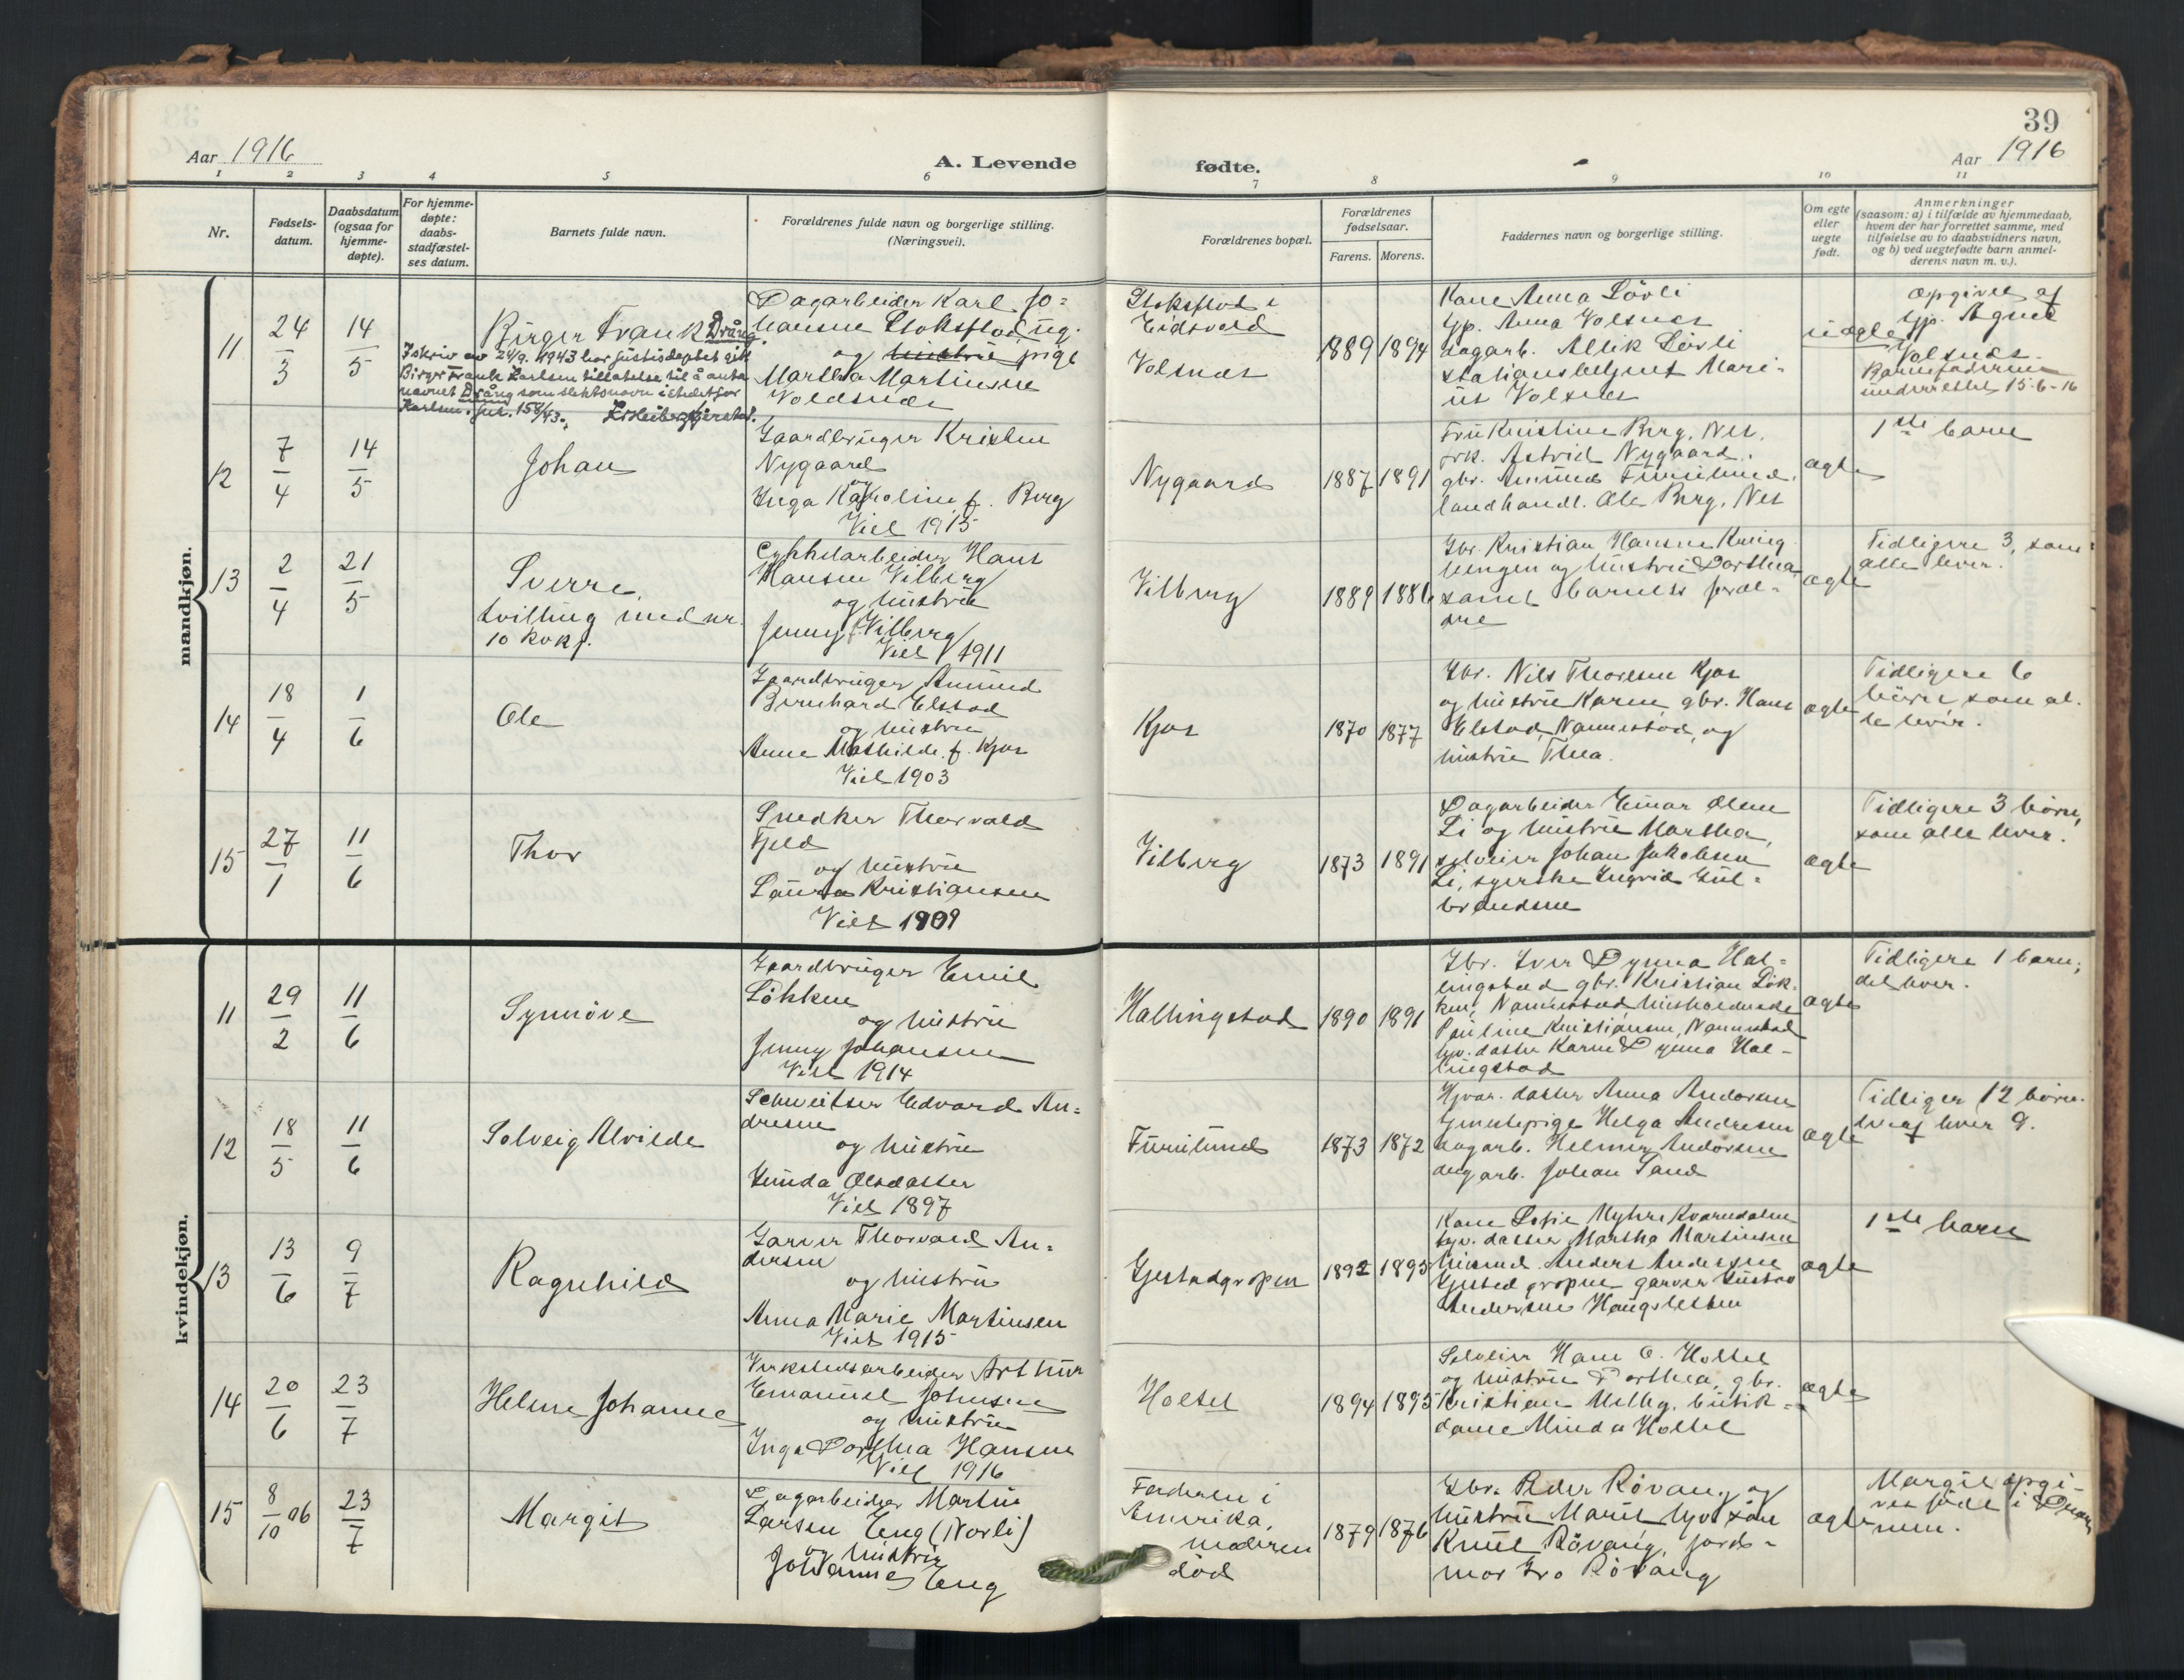 39
Aar 1916
A. Levende
fødte.
Aar 1916
1 2 3 4 5 6 7 8 9 10 11
Nr.
Fødsels-
datum.
Daabsdatum
(ogsaa for
hjemme-
døpte).
For hjemme-
døpte:
daabs-
stadfæstel-
ses datum.
Barnets fulde navn.
Forældrenes fulde navn og borgerlige stilling.
(Næringsvei).
Forældrenes bopæl.
Forældrenes
fødselsaar.
Farens. Morens.
Faddernes navn og borgerlige stilling.
Om egte
eller
uegte
født.
Anmerkninger
(saasom: a) i tilfælde av hjemmedaab,
hvem der har forrettet samme, med
tilføielse av to daabsvidners navn,
og b) ved uegtefødte barn anmel-
derens navn m. v.).
mandkjøn.
11
24/3
14/5
Birger Frank Drång.
I skriv av 24/9. 1943 har justisdeptet gitt
Birger Frank Karlsen tillatelse til å anta
navnet Drång som slektsnavn istedetfor
Karlsen. Jnr. 158/43.
Dagarbeider Karl Jo-
hansen Stoksflod, ug.
og hustru pige
Martha Martinsen
Voldsnes
Stoksflod i
Eidsvold
Volsnes
1889 1894
Kone Anna Løvli
gp. Anna Volsnes
dagarb. Alfik Løvli
stationsbetjent Mari-
us Volsnes
uægte
opgivet af
gp. Agnes
Volsnes.
Barnefaderen
underrettet 15-6-16
12
7/4
14/5
Johan
Gaardbruger Kristen
Nygaard
og
Inga Karoline f. Berg
Viet 1915
Nygaard
1887 1891
Fru Kristine Berg, Nes,
frk. Astrid Nygaard,
gbr. Amund Furulund,
landhandl. Ole Berg, Nes
ægte
1ste barn
13
2/4
21/5
Sverre,
tvilling med nr.
10 kvkj.
Cykkelarbeider Hans
Hansen Vilberg
og hustru
Jenny Vilberg
Viet 1911
Vilberg
1889 1886
Gbr. Kristian Hansen Kring
lengen og hustru Dorthea
samt barnets foræl-
dre
ægte
Tidligere 3, som
alle lever.
14
18/4
1/6
Ole
Gaardbruger Amund
Bernhard Elstad
og hustru
Anne Mathilde f. Kjos
Viet 1903
Kjos
1870 1877
Gbr. Nils Thoresen Kjos
og hustru Karen, gbr. Hans
Elstad, Nannestad, og
hustru Thea.
ægte
Tidligere 6
børn, som al-
le lever.
15
27/1
11/6
Thor
Snedker Thorvald
Fjeld
og hustru
Laura Kristiansen
Viet 1909
Vilberg
1873 1891
Dagarbeider Einar Olsen
Li og hustru Martha,
selveier Johan Jakobsen
Li, syerske Ingrid Gul-
brandsen
ægte
Tidligere 3 børn,
som alle lever.
kvindekjøn.
11
29/2
11/6
Synnøve
Gaardbruger Emil
Løkken
og hustru
Jenny Johansen
Viet 1914
Hallingstad
1890 1891
Gbr. Iver Dynna Hal-
lingstad gbr. Kristian Løk-
ken, Nannestad, husholderske
Pauline Kristiansen, Nannestad
hjv. datter Karen Dynna Hal-
lingstad
ægte
Tidligere 1 barn,
det lever.
12
18/5
11/6
Solveig Alvilde
Schweitser Edvard An-
dresen
og hustru
Gunda Olsdatter
Viet 1897
Furulund
1873 1872
Hjvær. datter Anna Andersen
tjenestepige Helga Andresen
dagarb. Helmer Andorsen
dagarb. Johan Sand
ægte
Tidliger 12 børn.
hvaf lever 9.
13
13/6
9/7
Ragnhild
Garver Thorvald An-
dersen
og hustru
Anna Marie Martinsen
Viet 1915
Gjestadgropen
1892 1893
Kone Sofie Myhre Kværndalen
hjv. datter Martha Martinsen
husmand Anders Andersen
Gjestad gropen garver Gustav
Andersen Haugsletten
ægte
1ste barn
14
20/6
23/7
Helene Johanne
Verkstedsarbeider Arthur
Emanuel Johnsen
og hustru
Inga Dorthea Hansen
Viet 1916
Holset
1894 1895
Selveier Hans O. Holtet
og hustru Dorthea, gbr.
Kristian Melby, butik-
dame Minda Holtet
ægte
15
8/10 06
23/7
Margit
Dagarbeider Martin
Larsen Eng (Norli)
og hustru
Johanne Eng
Faderen i
Amerika,
moderen
død
1879 1876
Gbr. Peder Røvang og
hustru Marit hjv. søn
Knut Røvang, jord-
mor Gro Røvang
ægte
Margit opgi-
ves født i Dram
men.